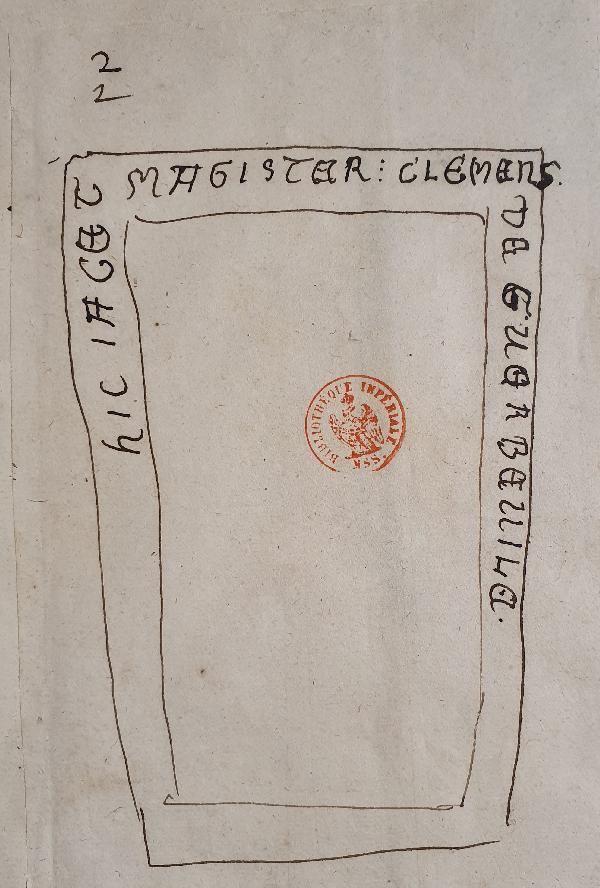 2
2
HIC IACET
MAGISTER : CLEMENS.
DE GUENBEUILE.
BIBLIOTHÈQUE IMPÉRIALE
MSS.